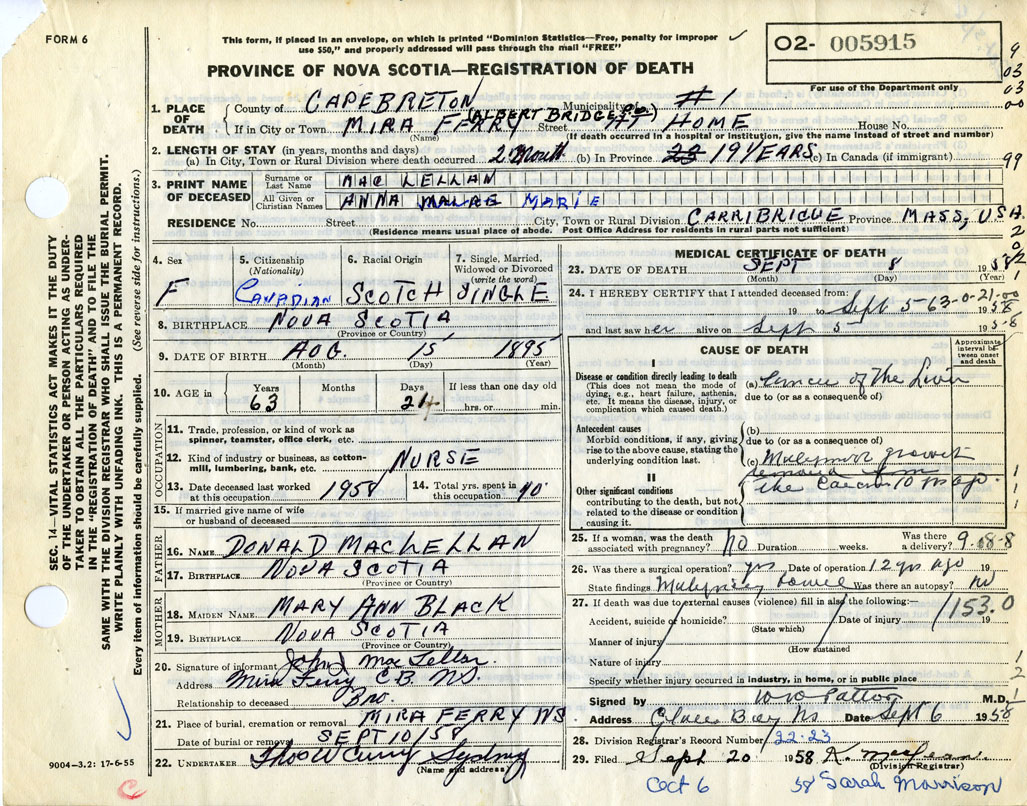 FORM 6
This form, if placed in an envelope, on which is printed "Dominion Statistics—Free, penalty for improper
use $50," and properly addressed will pass through the mail "FREE"
O2- 005915
For use of the Department only
9
03
03
00
PROVINCE OF NOVA SCOTIA—REGISTRATION OF DEATH
1. PLACE OF DEATH County of CAPE BRETON Municipality of #1
(ALBERT BRIDGE
If in City or Town MIRA FERRY Street AT HOME House No.
(Name) (If death occurred in a hospital or institution, give the name instead of street and number)
2. LENGTH OF STAY (in years, months and days)
(a) In City, Town or Rural Division where death occurred 2 Month (b) In Province 19 YEARS (c) In Canada (if immigrant) 99
3. PRINT NAME OF DECEASED
Surname or Last Name MAC LELLAN
All Given or Christian Names ANNA MARIE
RESIDENCE No. Street City, Town or Rural Division CARRIBRIGUE Province MASS, USA.
(Residence means usual place of abode. Post Office Address for residents in rural parts not sufficient)
4. Sex F
5. Citizenship (Nationality) Canadian
6. Racial Origin SCOTCH
7. Single, Married, Widowed or Divorced (write the word) SINGLE
8. BIRTHPLACE NOVA SCOTIA
(Province or Country)
9. DATE OF BIRTH AOG. 15 1895
(Month) (Day) (Year)
10. AGE in Years 63 Months Days 24 If less than one day old hrs. or min.
OCCUPATION
11. Trade, profession, or kind of work as spinner, teamster, office clerk, etc.
12. Kind of industry or business, as cotton-mill, lumbering, bank, etc. NURSE
13. Date deceased last worked at this occupation 1958
14. Total yrs. spent in this occupation 40
15. If married give name of wife or husband of deceased
FATHER
16. NAME DONALD MACLELLAN
17. BIRTHPLACE NOVA SCOTIA
(Province or Country)
MOTHER
18. MAIDEN NAME MARY ANN BLACK
19. BIRTHPLACE NOVA SCOTIA
(Province or Country)
20. Signature of informant John J MacLellan.
Address Mira Ferry C.B. N.S.
Relationship to deceased Bro.
21. Place of burial, cremation or removal MIRA FERRY NS
Date of burial or removal SEPT 10/58
22. UNDERTAKER Thos W Curry Sydney
(Name and address)
MEDICAL CERTIFICATE OF DEATH
23. DATE OF DEATH SEPT 8 1958
(Month) (Day) (Year)
24. I HEREBY CERTIFY that I attended deceased from:
19 to Sept 5 1958
63-0-21-00
and last saw her alive on Sept 5 1958
CAUSE OF DEATH
Approximate interval between onset and death
I
Disease or condition directly leading to death
(This does not mean the mode of dying, e.g., heart failure, asthenia, etc. It means the disease, injury, or complication which caused death.)
(a) Cancer of The Liver
due to (or as a consequence of)
Antecedent causes
Morbid conditions, if any, giving rise to the above cause, stating the underlying condition last.
(b)
due to (or as a consequence of)
(c) growth
the 10 yrs ago.
II
Other significant conditions
contributing to the death, but not related to the disease or condition causing it.
25. If a woman, was the death associated with pregnancy? No Duration weeks. Was there a delivery? 9-18-8
26. Was there a surgical operation? yes Date of operation 12 yrs ago 19
State findings bowel Was there an autopsy? no
27. If death was due to external causes (violence) fill in also the following:— 153.0
Accident, suicide or homicide? Date of injury 19
(State which)
Manner of injury
(How sustained
Nature of injury
Specify whether injury occurred in industry, in home, or in public place
Signed by W W Patton M.D.
Address Glace Bay NS Date Sept 6 1958
28. Division Registrar's Record Number 22-23
29. Filed Sept 20 1958 K. MacLean.
(Division Registrar)
Oct 6 58 Sarah Morrison
SEC. 14—VITAL STATISTICS ACT MAKES IT THE DUTY
OF THE UNDERTAKER OR PERSON ACTING AS UNDER-
TAKER TO OBTAIN ALL THE PARTICULARS REQUIRED
IN THE "REGISTRATION OF DEATH" AND TO FILE THE
SAME WITH THE DIVISION REGISTRAR WHO SHALL ISSUE THE BURIAL PERMIT.
WRITE PLAINLY WITH UNFADING INK. THIS IS A PERMANENT RECORD.
Every item of information should be carefully supplied. (See reverse side for instructions.)
9004—3.2: 17-6-55